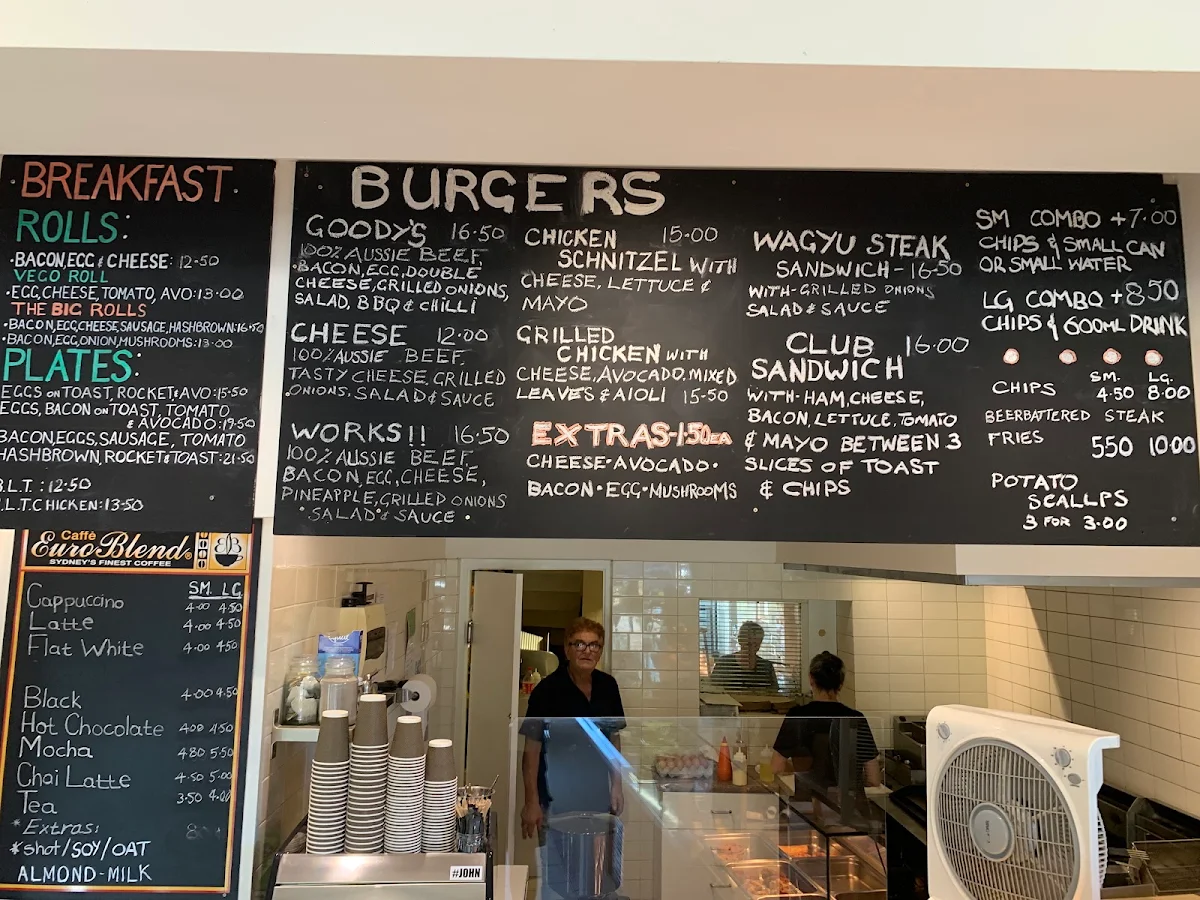 BREAKFAST
ROLLS:
•BACON,EGG & CHEESE: 12-50
VEGO ROLL
•EGG,CHEESE,TOMATO, AVO:13-00
THE BIG ROLLS
•BACON,EGG,CHEESE,SAUSAGE,HASHBROWN:16-50
•BACON,EGG,ONION,MUSHROOMS:13-00
PLATES:
EGGS ON TOAST, ROCKET&AVO:15-50
EGGS, BACON ON TOAST, TOMATO
& AVOCADO:19-50
BACON,EGGS,SAUSAGE, TOMATO
HASHBROWN,ROCKET&TOAST:21-50
B.L.T. :12-50
L.T.CHICKEN:13-50
Caffè
EuroBlend
SYDNEY'S FINEST COFFEE
SM. LG.
Cappuccino 4-00 4-50
Latte 4-00 4-50
Flat White 4-00 4-50
Black 4-00 4-50
Hot Chocolate 4-00 4-50
Mocha 4-80 5-50
Chai Latte 4-50 5-00
Tea 3-50 4-00
*Extras:
*shot/SOY/OAT
ALMOND-MILK
BURGERS
GOODY'S 16-50
100% AUSSIE BEEF,
•BACON,EGG,DOUBLE
CHEESE,GRILLED ONIONS,
SALAD, BBQ & CHILLI
CHEESE 12-00
100% AUSSIE BEEF,
TASTY CHEESE, GRILLED
ONIONS, SALAD & SAUCE
WORKS!! 16-50
100% AUSSIE BEEF
BACON,EGG,CHEESE,
PINEAPPLE,GRILLED ONIONS
•SALAD & SAUCE •
CHICKEN 15-00
SCHNITZEL WITH
CHEESE, LETTUCE &
MAYO
GRILLED
CHICKEN WITH
CHEESE,AVOCADO,MIXED
LEAVES & AIOLI 15-50
EXTRAS-1-50EA
CHEESE•AVOCADO•
BACON•EGG•MUSHROOMS
WAGYU STEAK
SANDWICH-16-50
WITH-GRILLED ONIONS
SALAD & SAUCE
CLUB 16-00
SANDWICH
WITH-HAM,CHEESE,
BACON, LETTUCE, TOMATO
& MAYO BETWEEN 3
SLICES OF TOAST
& CHIPS
SM COMBO +7-00
CHIPS & SMALL CAN
OR SMALL WATER
LG COMBO +8-50
CHIPS & 600ML DRINK
SM. LG.
CHIPS 4-50 8-00
BEERBATTERED STEAK
FRIES 5 50 10 00
POTATO
SCALLPS
3 FOR 3-00
#JOHN